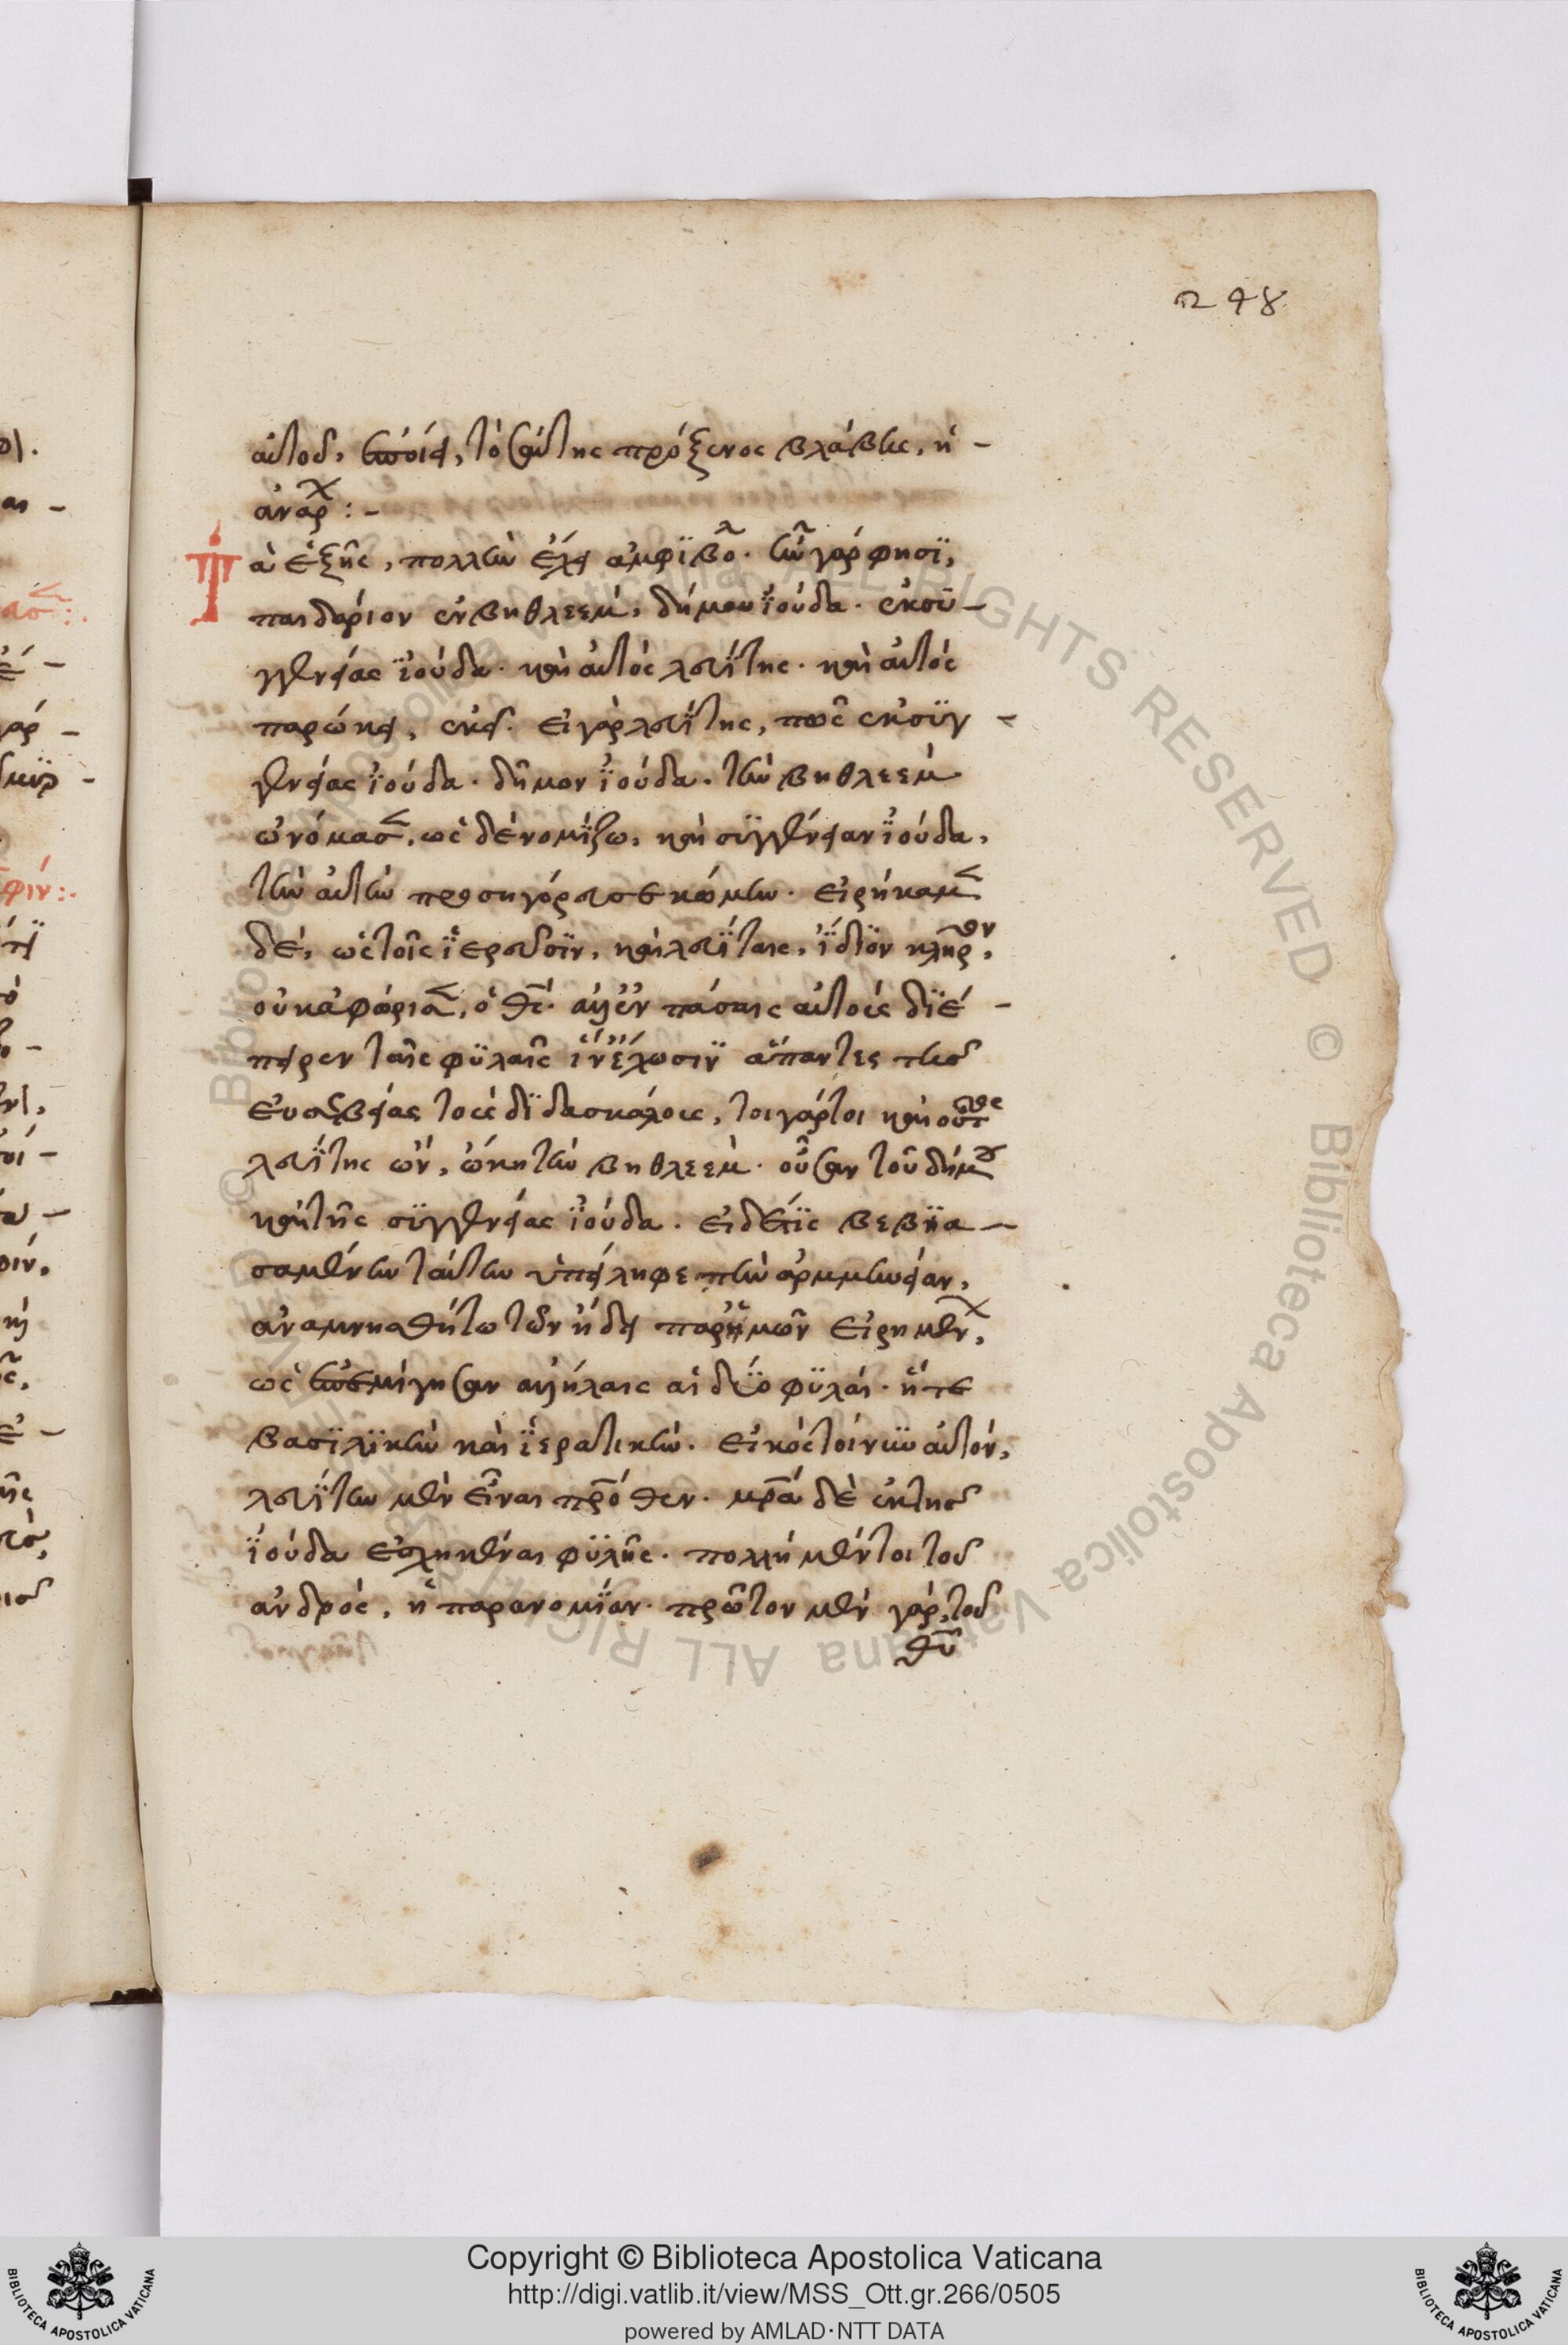 248
αὐτοῦ, ἐποίει, τοσαύτης πρόξενος βλάβης, ἡ –
ἀναρχ :–
Τὰ ἑξῆς, πολλὴν ἔχει ἀμφϊβολ. ἦν γάρ φησϊ,
παιδάριον ἐν βηθλεὲμ, δήμου ϊούδα. ἐκ συ –
γγενείας ϊούδα. καὶ αὐτὸς λευΐτης. καὶ αὐτὸς
παρώκει, ἐκεῖ. εἰ γὰρ λευΐτης, πῶς ἐκ συγ –
γενείας ϊούδα. δῆμον ϊούδα. τὴν βηθλεὲμ
ὠνόμασ, ὡς δὲ νομίζω, καὶ συγγένειαν ϊούδα,
τὴν αὐτὴν προσηγόρευσε κώμην. εἰρήκαμ
δέ, ὡς τοῖς ϊερεῦσϊν, καὶ λευΐταις, ἴδϊον κλῆρον,
οὐκ ἀφώρισ, ὁ θς. ἀλλ' ἐν πάσαις αὐτοὺς διέ –
σπειρεν ταῖς φυλαῖς ἵν' ἔχωσιν ἅπαντες τῆς
εὐσεβείας τοὺς δϊδασκάλους, τοιγάρτοι καὶ οὗτος
λευΐτης ὢν, ὤκει τὴν βηθλεὲμ. οὖσαν τοῦ δήμου
καὶ τῆς συγγενείας ϊούδα. εἰ δέ τις βεβϊα –
σμένην ταύτην ὑπείληφε τὴν ἑρμηνείαν,
ἀναμνησθήτω τῶν ἤδη παρ' ἡμῶν εἰρημεν,
ὡς ἐπεμίγησαν ἀλλήλαις αἱ δύο φυλαὶ. ἥ τε
βασϊλϊκὴ καὶ ϊερατικὴ. εἰκὸς τοίνυν αὐτὸν,
λευΐτην μὲν εἶναι πρόθεν. μρα δὲ ἐκ τῆς
ϊούδα ἐσχηκέναι φυλῆς. πολλὴ μέντοι τοῦ
ἀνδρὸς, ἡ παρανομία. πρῶτον μὲν γὰρ, τοῦ
θυ
Copyright © Biblioteca Apostolica Vaticana
http://digi.vatlib.it/view/MSS_Ott.gr.266/0505
powered by AMLAD·NTT DATA